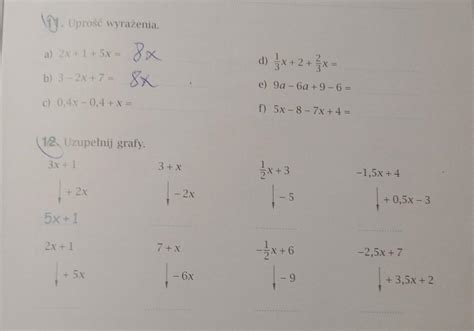 11. Uprość wyrażenia.
a) 2x + 1 + 5x = 8x
b) 3 − 2x + 7 = 8x
c) 0,4x − 0,4 + x =
d) 1/3x + 2 + 2/3x =
e) 9a − 6a + 9 − 6 =
f) 5x − 8 − 7x + 4 =
12. Uzupełnij grafy.
3x + 1 3 + x 1/2x + 3 −1,5x + 4
+ 2x − 2x − 5 + 0,5x − 3
5x + 1
2x + 1 7 + x −1/2x + 6 −2,5x + 7
+ 5x − 6x − 9 + 3,5x + 2